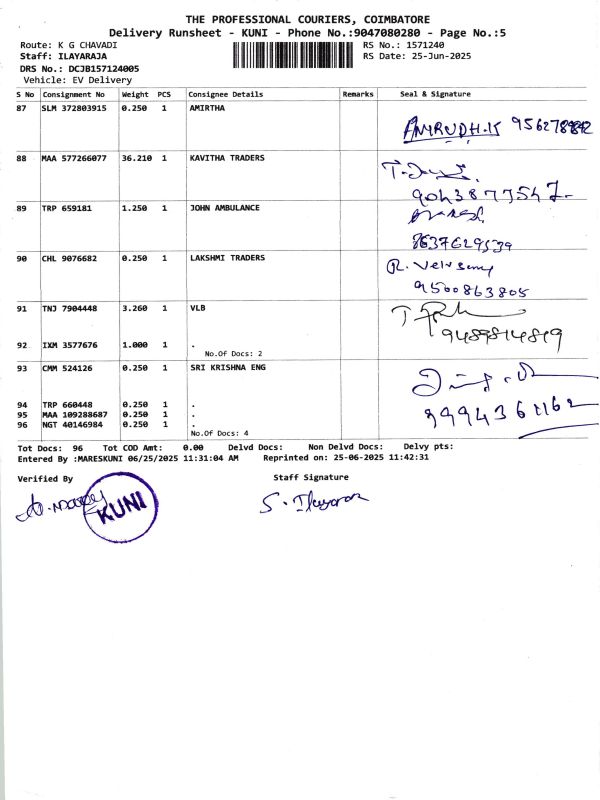 THE PROFESSIONAL COURIERS, COIMBATORE
Delivery Runsheet - KUNI - Phone No.:9047080280 - Page No.:5
Route: K G CHAVADI
RS No.: 1571240
Staff: ILAYARAJA
RS Date: 25-Jun-2025
DRS No.: DCJB157124005
Vehicle: EV Delivery
S No Consignment No Weight PCS Consignee Details Remarks Seal & Signature
87 SLM 372803915 0.250 1 AMIRTHA
AMRUDH.K
88 MAA 577266077 36.210 1 KAVITHA TRADERS
9043877547
89 TRP 659181 1.250 1 JOHN AMBULANCE
8637629539
90 CHL 9076682 0.250 1 LAKSHMI TRADERS
R. Velusamy
9500863805
91 TNJ 7904448 3.260 1 VLB
92 IXM 3577676 1.000 1 .
9489814819
No.Of Docs: 2
93 CMM 524126 0.250 1 SRI KRISHNA ENG
94 TRP 660448 0.250 1 .
95 MAA 109288687 0.250 1 .
96 NGT 40146984 0.250 1 .
No.Of Docs: 4
Tot Docs: 96 Tot COD Amt: 0.00 Delvd Docs: Non Delvd Docs: Delvy pts:
Entered By :MARESKUNI 06/25/2025 11:31:04 AM Reprinted on: 25-06-2025 11:42:31
Verified By Staff Signature
KUNI
S. Ilayaraja